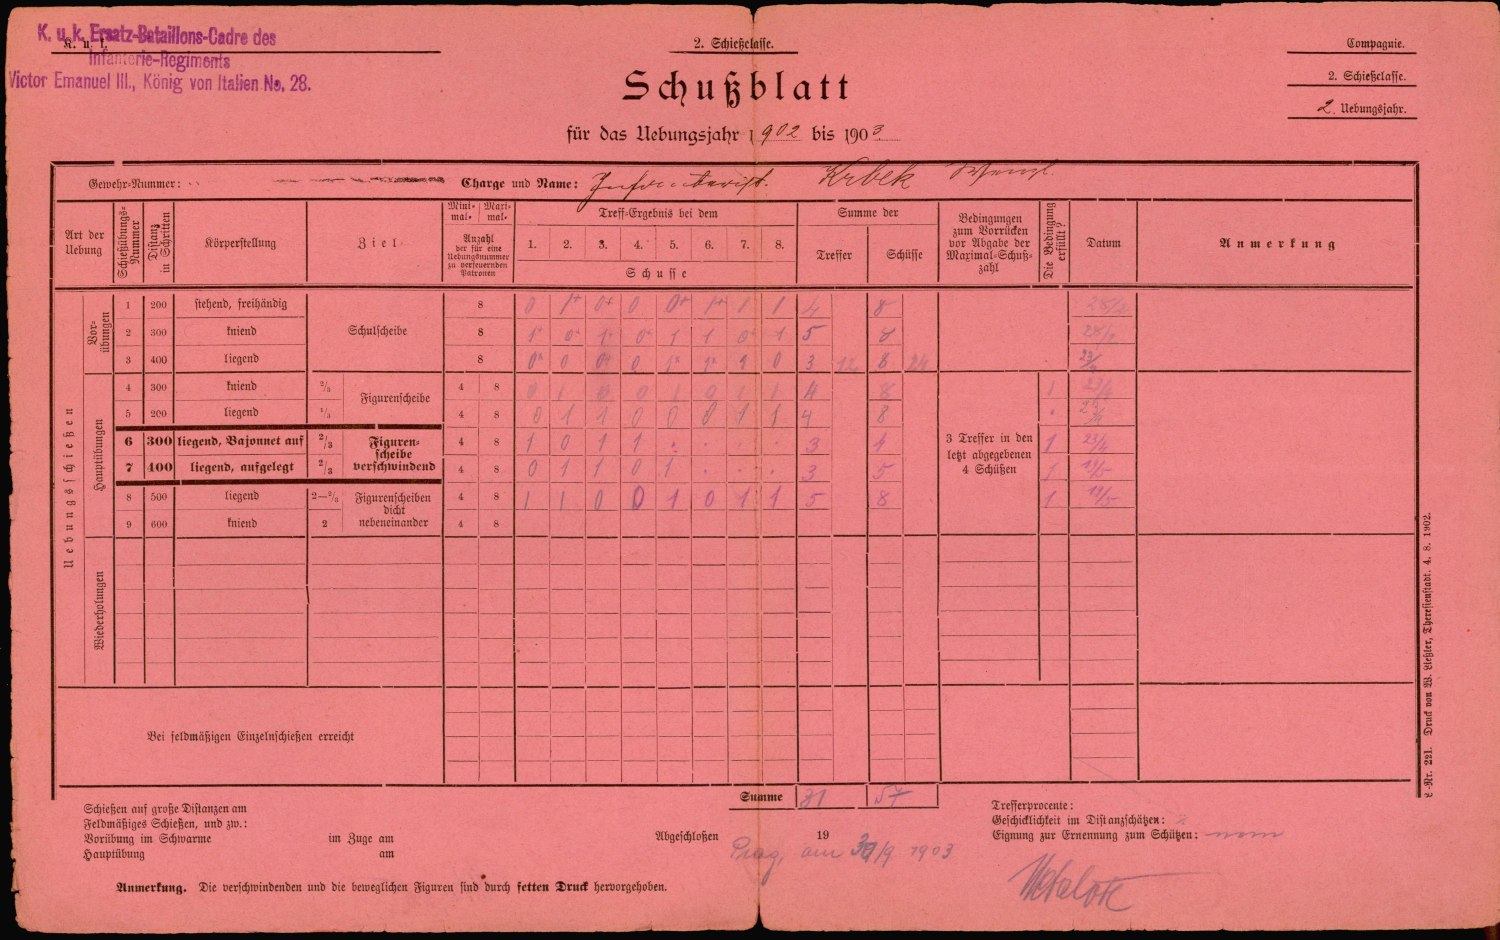 K. u. k. Ersatz-Bataillons-Cadre des
Infanterie-Regiments
Victor Emanuel III., König von Italien No. 28.
K. u. k.
2. Schießclasse.
Schußblatt
für das Uebungsjahr 1902 bis 1903
Compagnie.
2. Schießclasse.
2. Uebungsjahr.
Gewehr-Nummer:
Charge und Name: Infanterist. Krbek Wenzl.
Art der Uebung
Schießübungs-Nummer
Distanz in Schritten
Körperstellung
Ziel
Mini-mal- Maxi-mal-
Anzahl der für eine Uebungsnummer zu verfeuernden Patronen
Treff-Ergebnis bei dem
1. 2. 3. 4. 5. 6. 7. 8.
Schusse
Summe der
Treffer Schüsse
Bedingungen zum Vorrücken vor Abgabe der Maximal-Schuß-zahl
Die Bedingung erfüllt?
Datum
Anmerkung
Uebungsschießen
Vor-übungen
1 200 stehend, freihändig 8 0 1+ 0+ 0 0+ 1+ 1 1 4 8
2 300 kniend Schulscheibe 8 5 8
3 400 liegend 8 3 12 8 24
Hauptübungen
4 300 kniend 2/3 Figurenscheibe 4 8 0 1 0 0 1 0 1 1 4 8 1
5 200 liegend 1/3 4 8 0 1 1 0 0 0 1 1 4 8
6 300 liegend, Bajonnet auf 2/3 Figuren-scheibe verschwindend 4 8 1 0 1 1 3 4 1 23/4
7 400 liegend, aufgelegt 2/3 4 8 0 1 1 0 1 3 5 1
8 500 liegend 2—2/3 Figurenscheiben dicht nebeneinander 4 8 1 1 0 0 1 0 1 1 5 8 1 19/5
9 600 kniend 2 4 8
3 Treffer in den letzt abgegebenen 4 Schüßen
Wiederholungen
Bei feldmäßigen Einzelnschießen erreicht
Summe 31 57
Schießen auf große Distanzen am
Feldmäßiges Schießen, und zw.:
Vorübung im Schwarme im Zuge am
Hauptübung am
Abgeschloßen 19
Prag, am 30/9 1903
Trefferprocente:
Geschicklichkeit im Distanzschätzen:
Eignung zur Ernennung zum Schützen:
Anmerkung. Die verschwindenden und die beweglichen Figuren sind durch fetten Druck hervorgehoben.
L.-Nr. 221. Druck von W. Lešler, Theresienstadt. 4. 8. 1902.